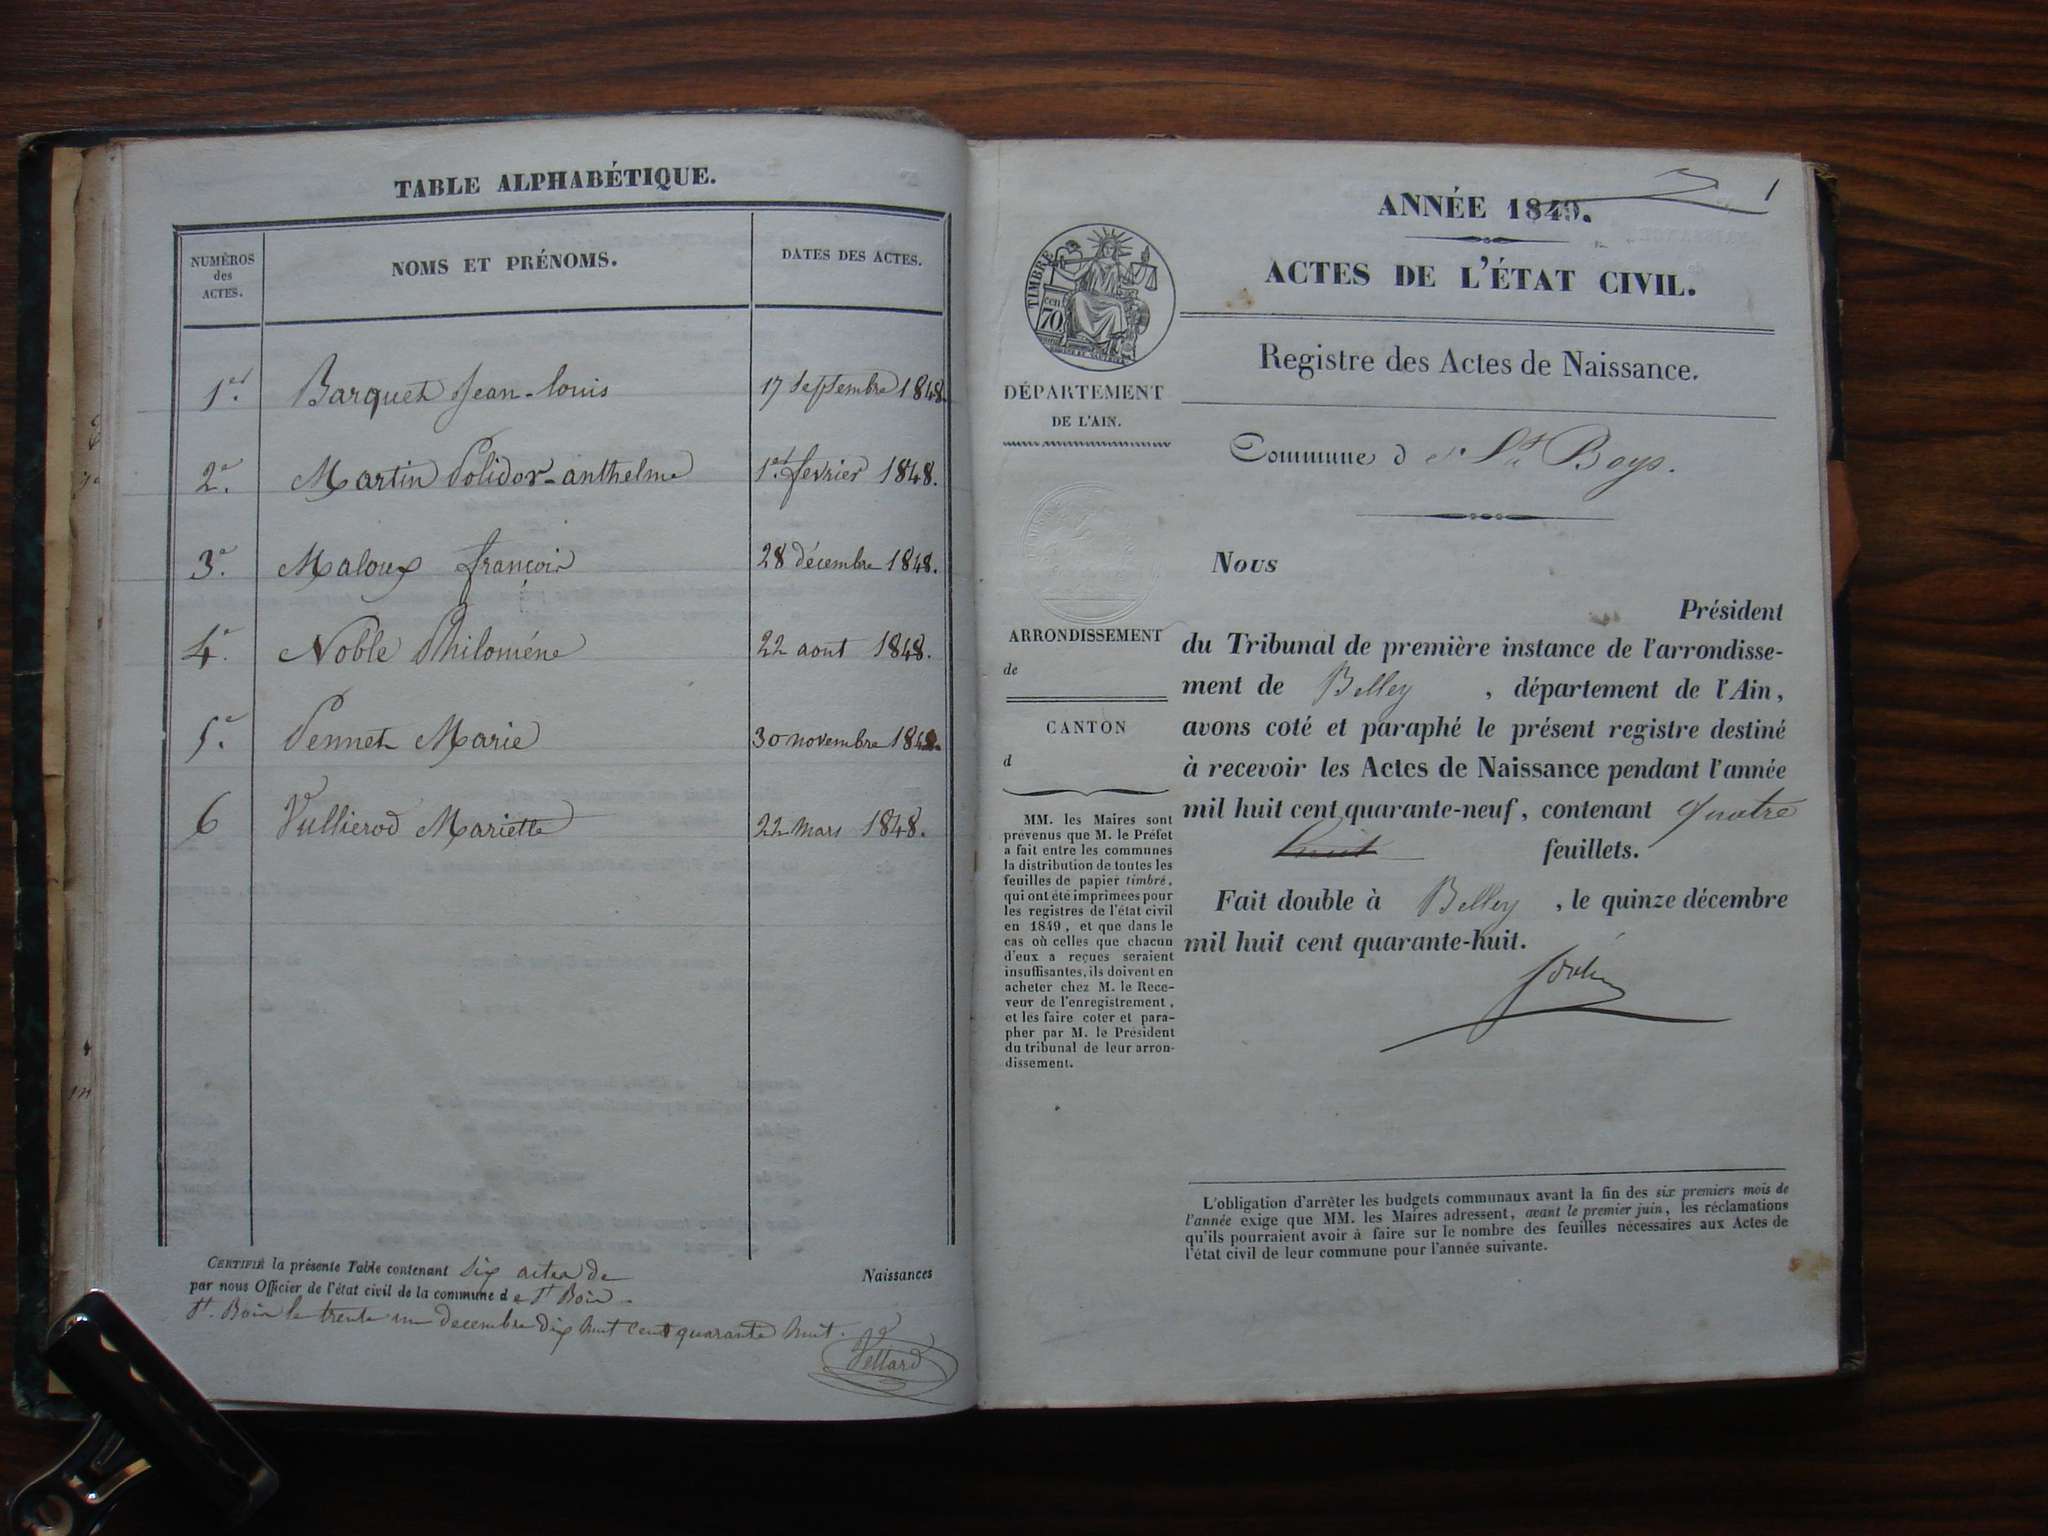 TABLE ALPHABÉTIQUE.
NUMÉROS des ACTES.
NOMS ET PRÉNOMS.
DATES DES ACTES.
1er. Barquet Jean-louis 17 Septembre 1848.
2e. Martin Polidor-anthelme 1er fevrier 1848.
3e. Maloux françois 28 décembre 1848.
4e. Noble Philoméne 22 aout 1848.
5e. Pennet Marie 30 novembre 1848.
6 Vullierod Mariette 22 mars 1848.
CERTIFIÉ la présente Table contenant six actes de Naissances
par nous Officier de l'état civil de la commune de St Bois.
St. Bois le trente un decembre dix huit cent quarante huit.
Vettard
1
ANNÉE 1849.
ACTES DE L'ÉTAT CIVIL.
Registre des Actes de Naissance.
Commune d e St Boys.
TIMBRE
cen
70
DÉPARTEMENT
DE L'AIN.
ARRONDISSEMENT
de
CANTON
d
MM. les Maires sont
prévenus que M. le Préfet
a fait entre les communes
la distribution de toutes les
feuilles de papier timbré,
qui ont été imprimées pour
les registres de l'état civil
en 1849, et que dans le
cas où celles que chacun
d'eux a reçues seraient
insuffisantes, ils doivent en
acheter chez M. le Rece-
veur de l'enregistrement,
et les faire coter et para-
pher par M. le Président
du tribunal de leur arron-
dissement.
Nous
Président
du Tribunal de première instance de l'arrondisse-
ment de Belley, département de l'Ain,
avons coté et paraphé le présent registre destiné
à recevoir les Actes de Naissance pendant l'année
mil huit cent quarante-neuf, contenant quatre
huit feuillets.
Fait double à Belley, le quinze décembre
mil huit cent quarante-huit.
L'obligation d'arrêter les budgets communaux avant la fin des six premiers mois de
l'année exige que MM. les Maires adressent, avant le premier juin, les réclamations
qu'ils pourraient avoir à faire sur le nombre des feuilles nécessaires aux Actes de
l'état civil de leur commune pour l'année suivante.